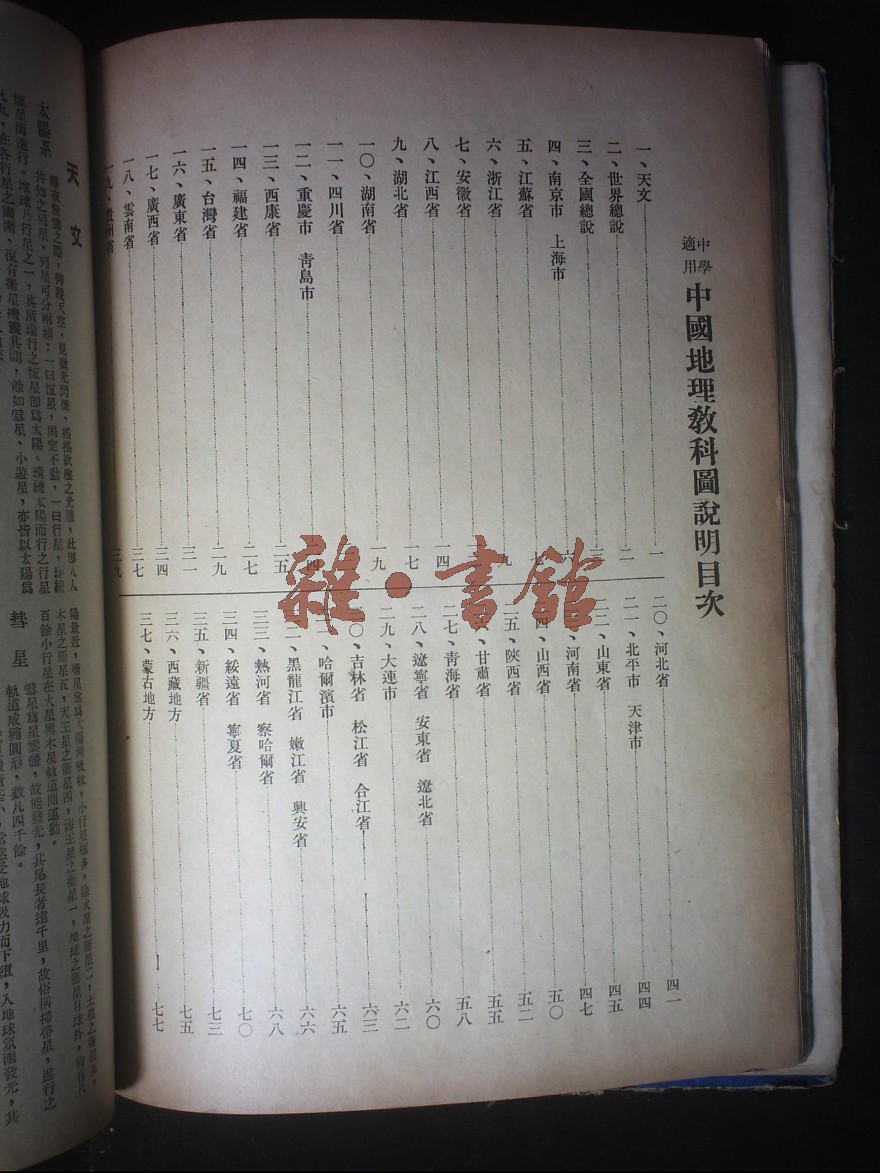 中學適用 中國地理敎科圖說明目次
一、天文 一
二、世界總說 二
三、全國總說 三
四、南京市 上海市 六
五、江蘇省 七
六、浙江省 九
七、安徽省
八、江西省 一四
九、湖北省 一七
一〇、湖南省 一九
一一、四川省
一二、重慶市 靑島市 二四
一三、西康省 二五
一四、福建省 二七
一五、台灣省 二九
一六、廣東省 三一
一七、廣西省 三四
一八、雲南省 三七
一九、貴州省 三九
二〇、河北省 四一
二一、北平市 天津市 四四
二二、山東省 四五
河南省 四七
山西省 五〇
二五、陝西省 五二
甘肅省 五五
二七、靑海省 五八
二八、遼寧省 安東省 遼北省 六〇
二九、大連市 六二
三〇、吉林省 松江省 合江省 六三
哈爾濱市 六五
黑龍江省 嫩江省 興安省 六六
三三、熱河省 察哈爾省 六八
三四、綏遠省 寧夏省 七〇
三五、新疆省 七三
三六、西藏地方 七五
三七、蒙古地方 七七
雜·書館
天文
太陽系
恆星而進行。地球乃行星之一，其所環行之恆星卽爲太陽。環繞太陽而行之行星
彗星
軌道成橢圓形，數凡四千餘。